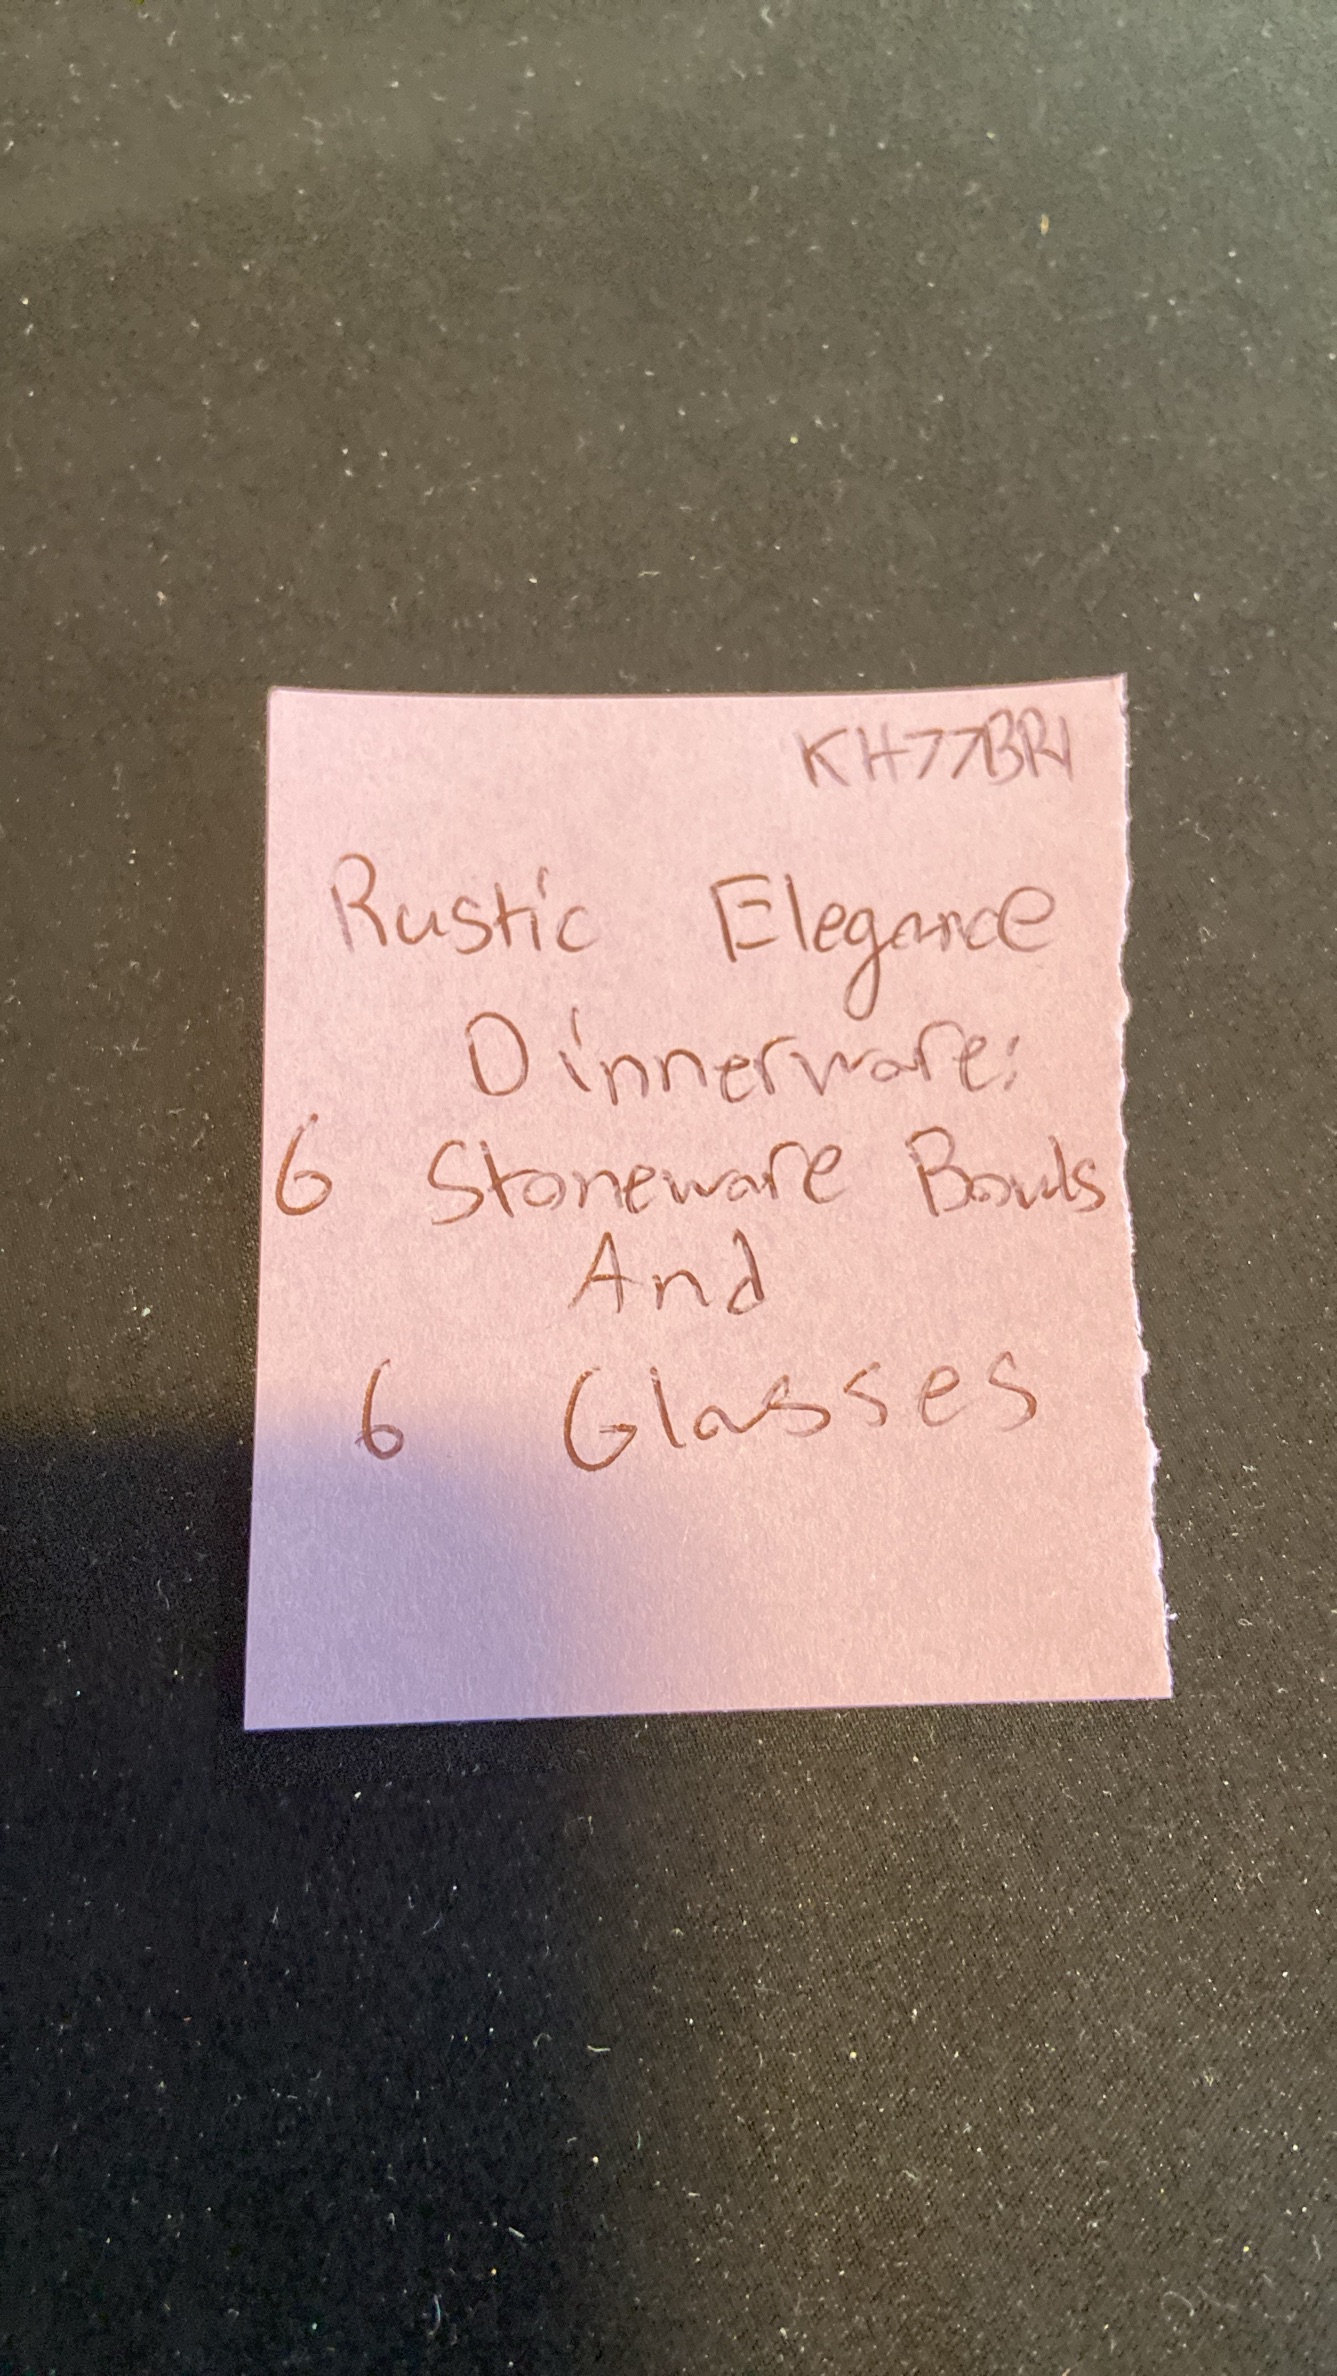 KH77BRI
Rustic Elegance
Dinnerware:
6 Stoneware Bowls
And
6 Glasses